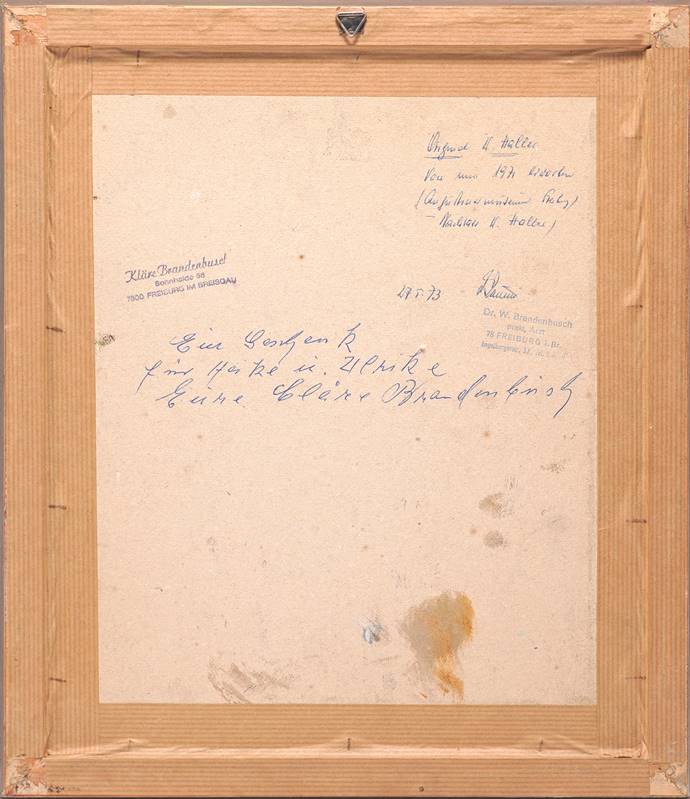 Original W. Haller
Von uns 1971 erworben
(Augustinermuseum Frbg)
Nachlass W. Haller)
Kläre Brandenbusch
Sonnhalde 98
7800 FREIBURG IM BREISGAU
29.5.73
Dr. W. Brandenbusch
prakt. Arzt
78 FREIBURG i. Br.
Ein Geschenk
für Heike u. Ulrike
Eure Cläre Brandenbusch